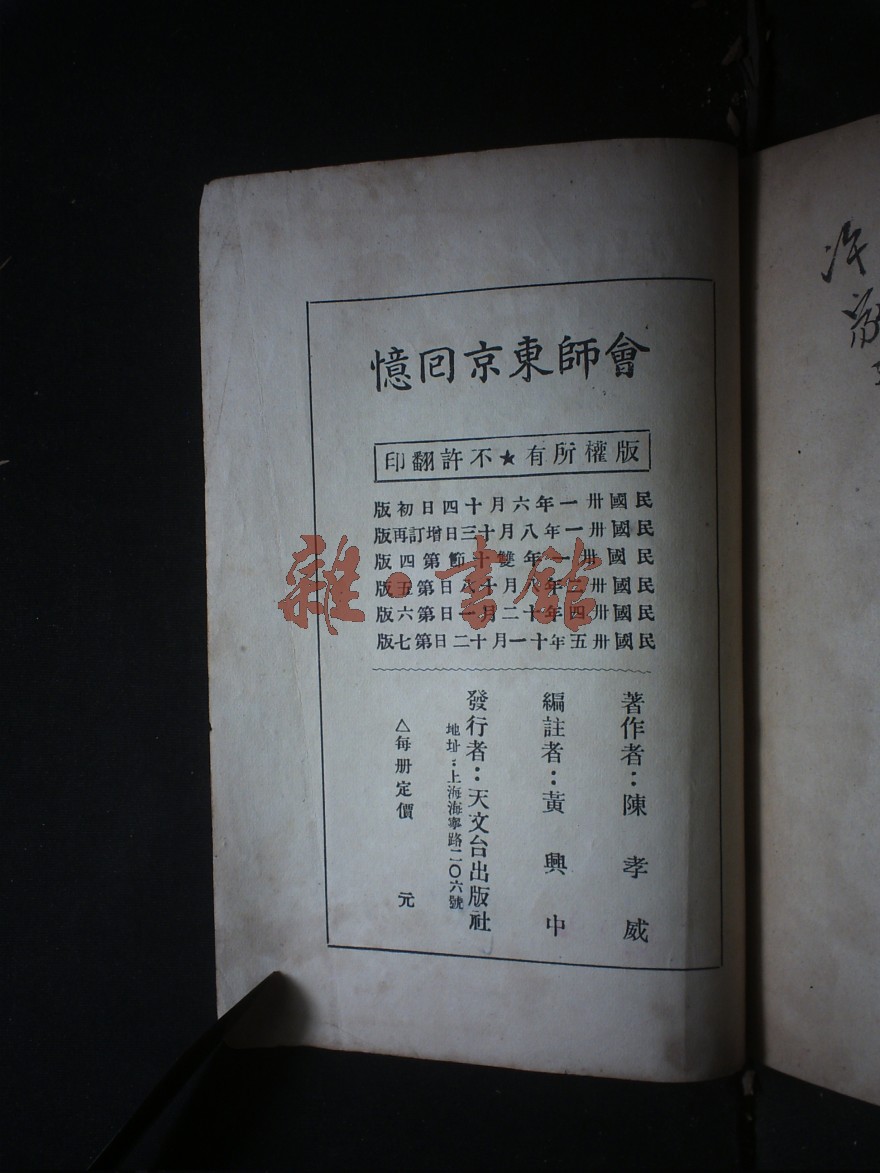 會師東京囘憶
版權所有★不許翻印
民國卅一年六月十四日初版
民國卅一年八月十三日增訂再版
民國卅一年雙十節第四版
民國卅三年八月十八日第五版
民國卅四年十二月一日第六版
民國卅五年十一月十二日第七版
著作者：陳孝威
編註者：黃興中
發行者：天文台出版社
地址：上海海寧路二〇六號
△每册定價　元
雜·書館